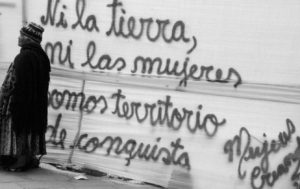 Ni la tierra,
ni las mujeres
somos territorio
de conquista
Mujeres
Creando